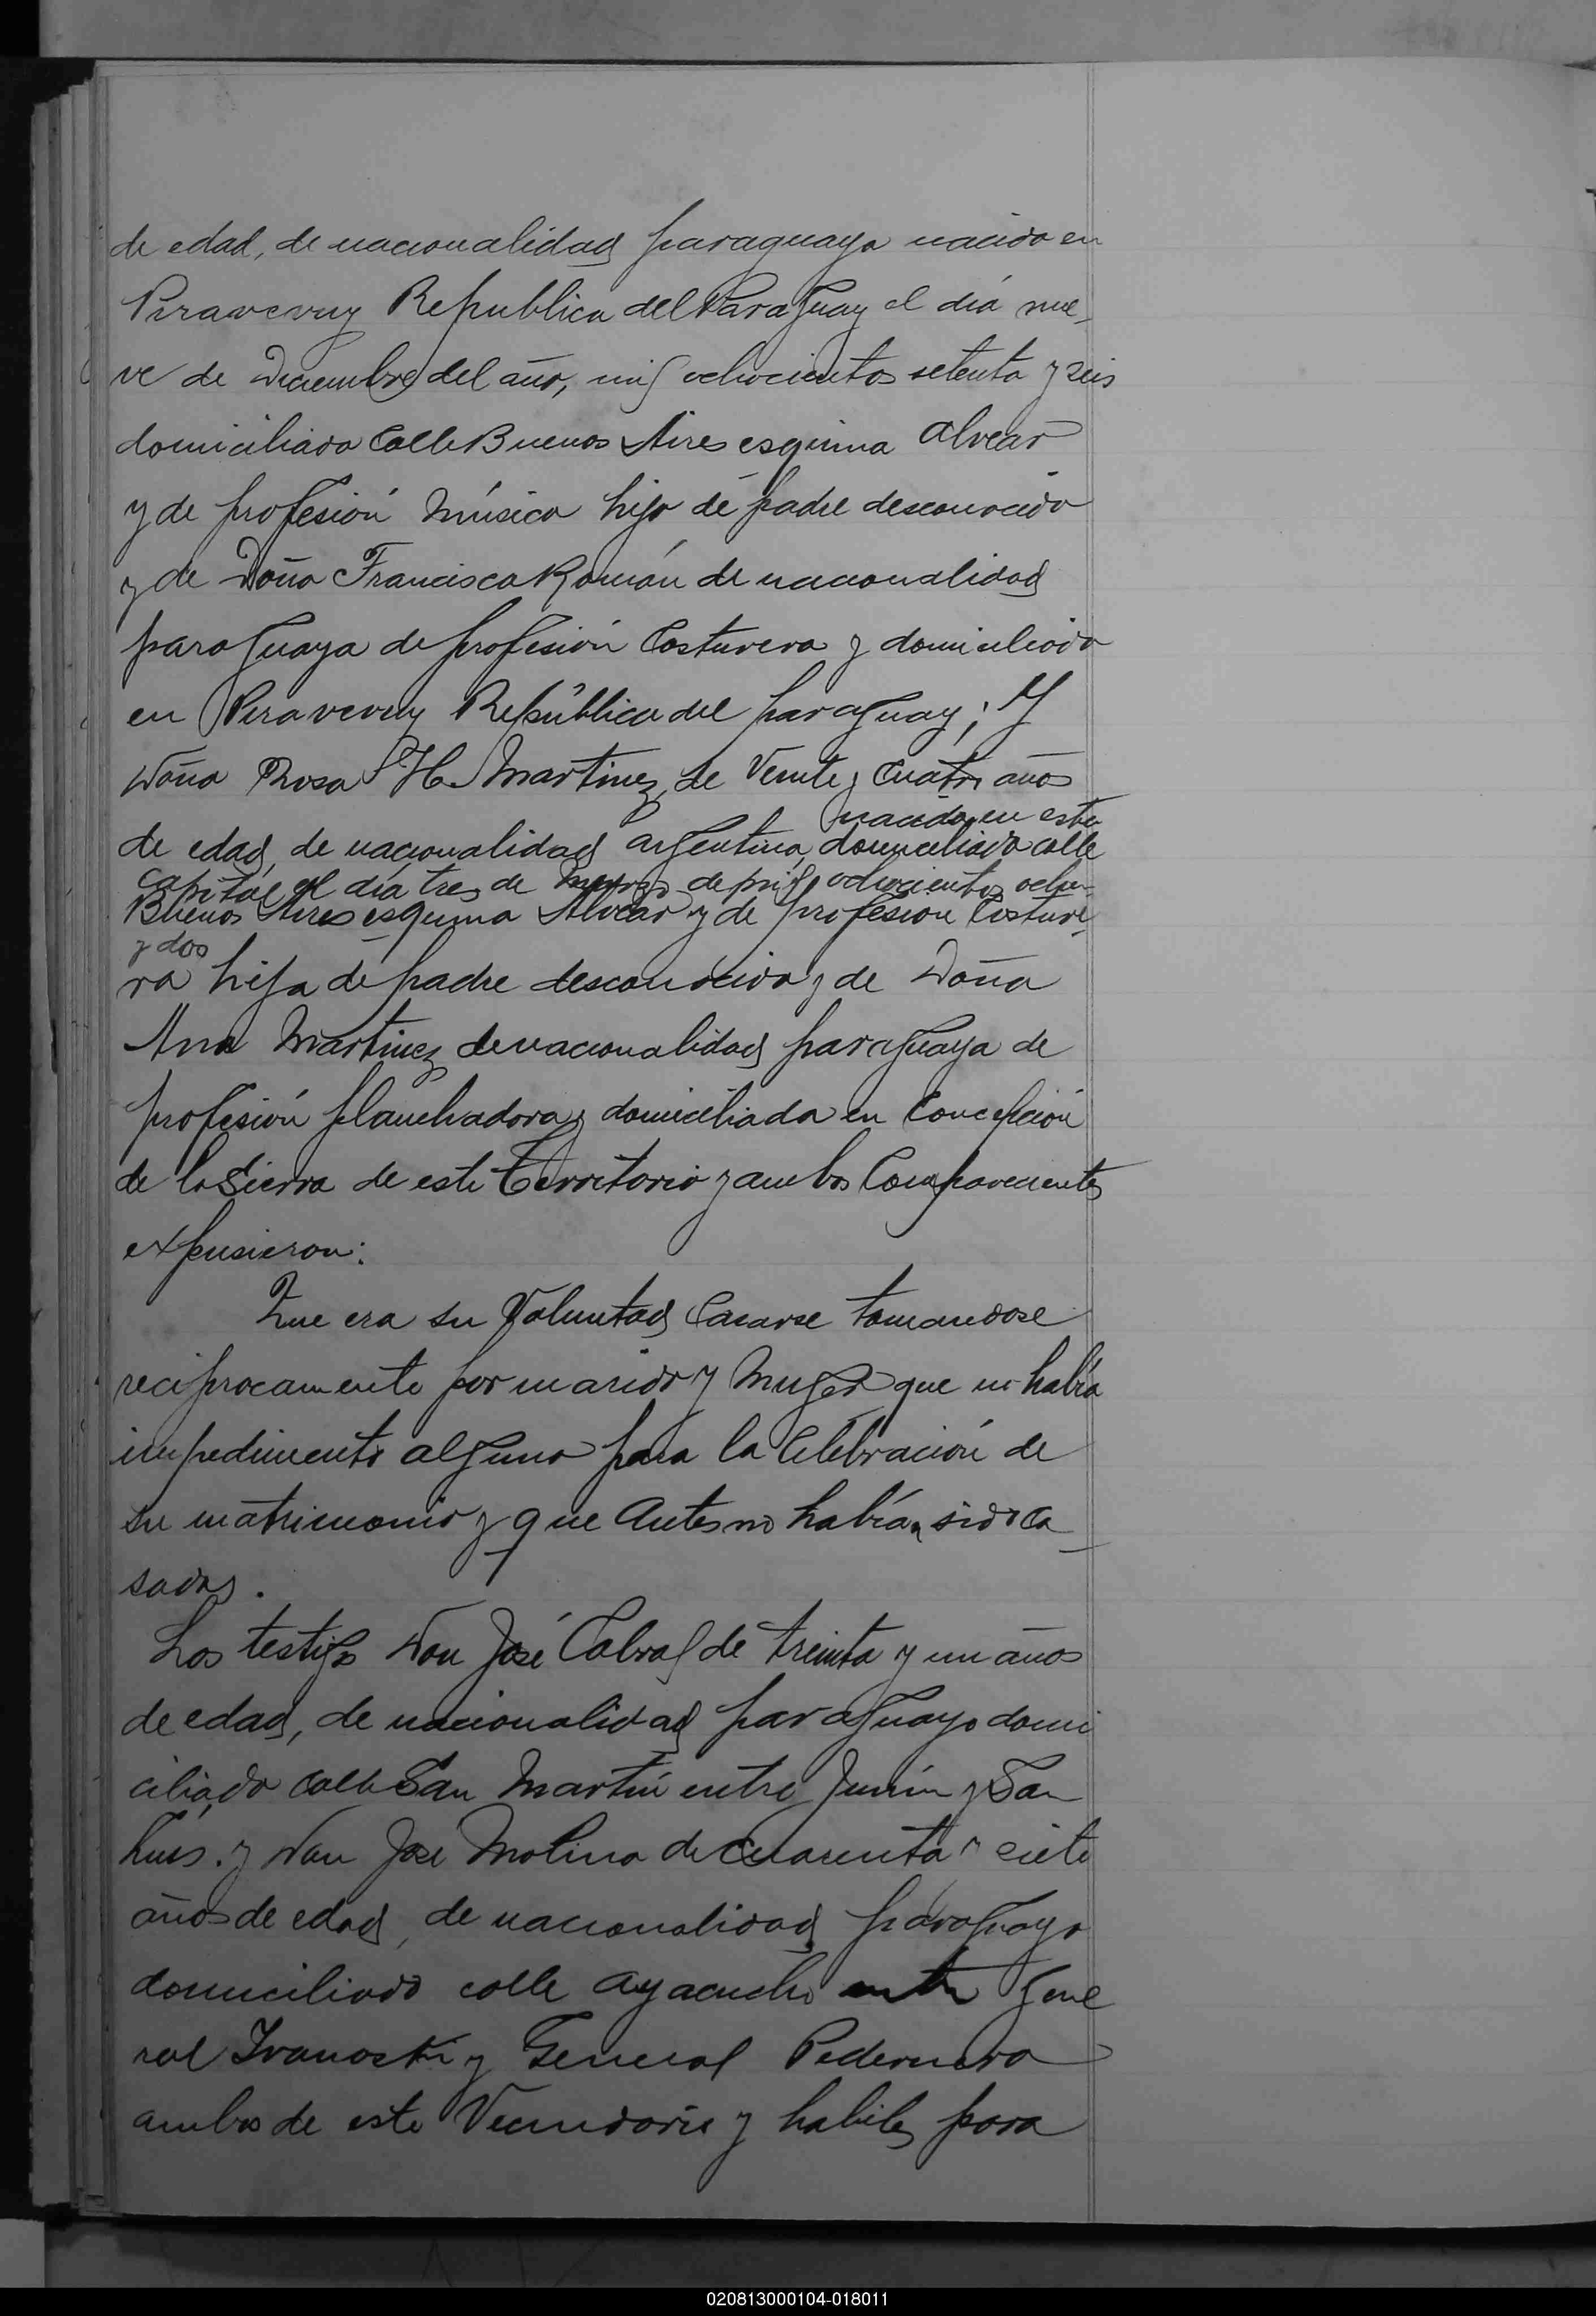 de edad, de nacionalidad paraguaya nacido en
Piravevuy Republica del Paraguay el día nue-
ve de Diciembre del año, mil ochocientos setenta y seis
domiciliado Calle Buenos Aires esquina Alvear
y de profesión Músico hijo de padre desconocido
y de Doña Francisca Román de nacionalidad
paraguaya de profesión Costurera y domiciliada
en Piravevuy República del Paraguay; Y
Doña Rosa H. Martinez, de Veinte y Cuatro años
nacida en esta
de edad, de nacionalidad argentina, domiciliada calle
Capital el día tres de de mil ochocientos ochen-
Buenos Aires esquina Alvear y de profesión Costure-
y dos
ra hija de padre desconocido y de Doña
Ana Martinez de nacionalidad paraguaya de
profesión planchadora y domiciliada en Concepción
de la Sierra de este Territorio y ambos Comparecientes
expusieron:
Que era su Voluntad Casarse tomandose
reciprocamente por marido y Muger que no había
impedimento alguno para la Celebración de
su matrimonio y que Antes no habían sido ca-
sados.
Los testigos Don José Cabral de treinta y un años
de edad, de nacionalidad paraguayo domi
ciliado calle San Martín entre Junín y San
Luis. y Don José Molina de Cuarenta y siete
años de edad, de nacionalidad paraguayo
domiciliado calle Ayacucho entre Gene
ral Ivanoski y General Pedernera
ambos de este Vecindario y habiles para
020813000104-018011